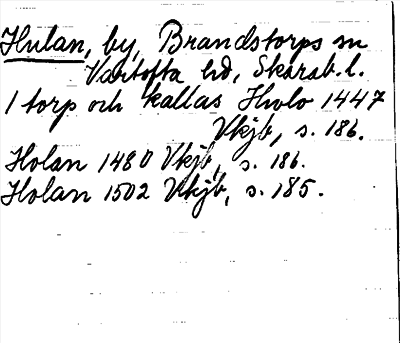 Hulan, by, Brandstorps sn
Vartofta hd, Skarab. l.
1 torp och kallas Hwlo 1447
Vkjb, s. 186.
Holan 1480 Vkjb, s. 186.
Holan 1502 Vkjb, s. 185.